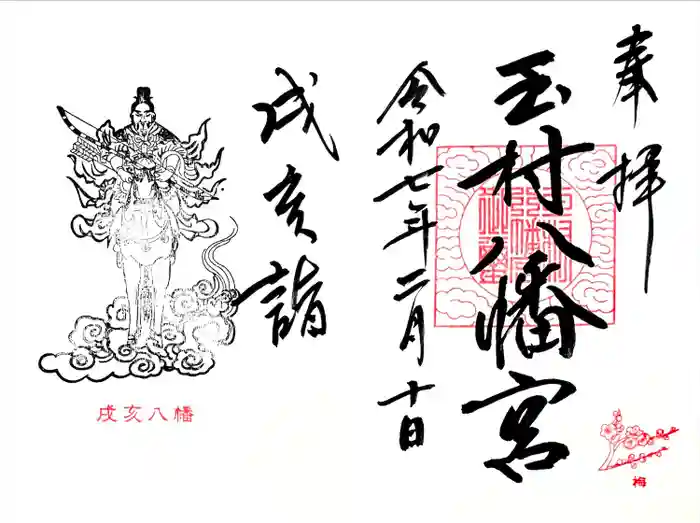 奉拝
玉村八幡宮
令和七年二月十日
戌亥詣
戌亥八幡
梅